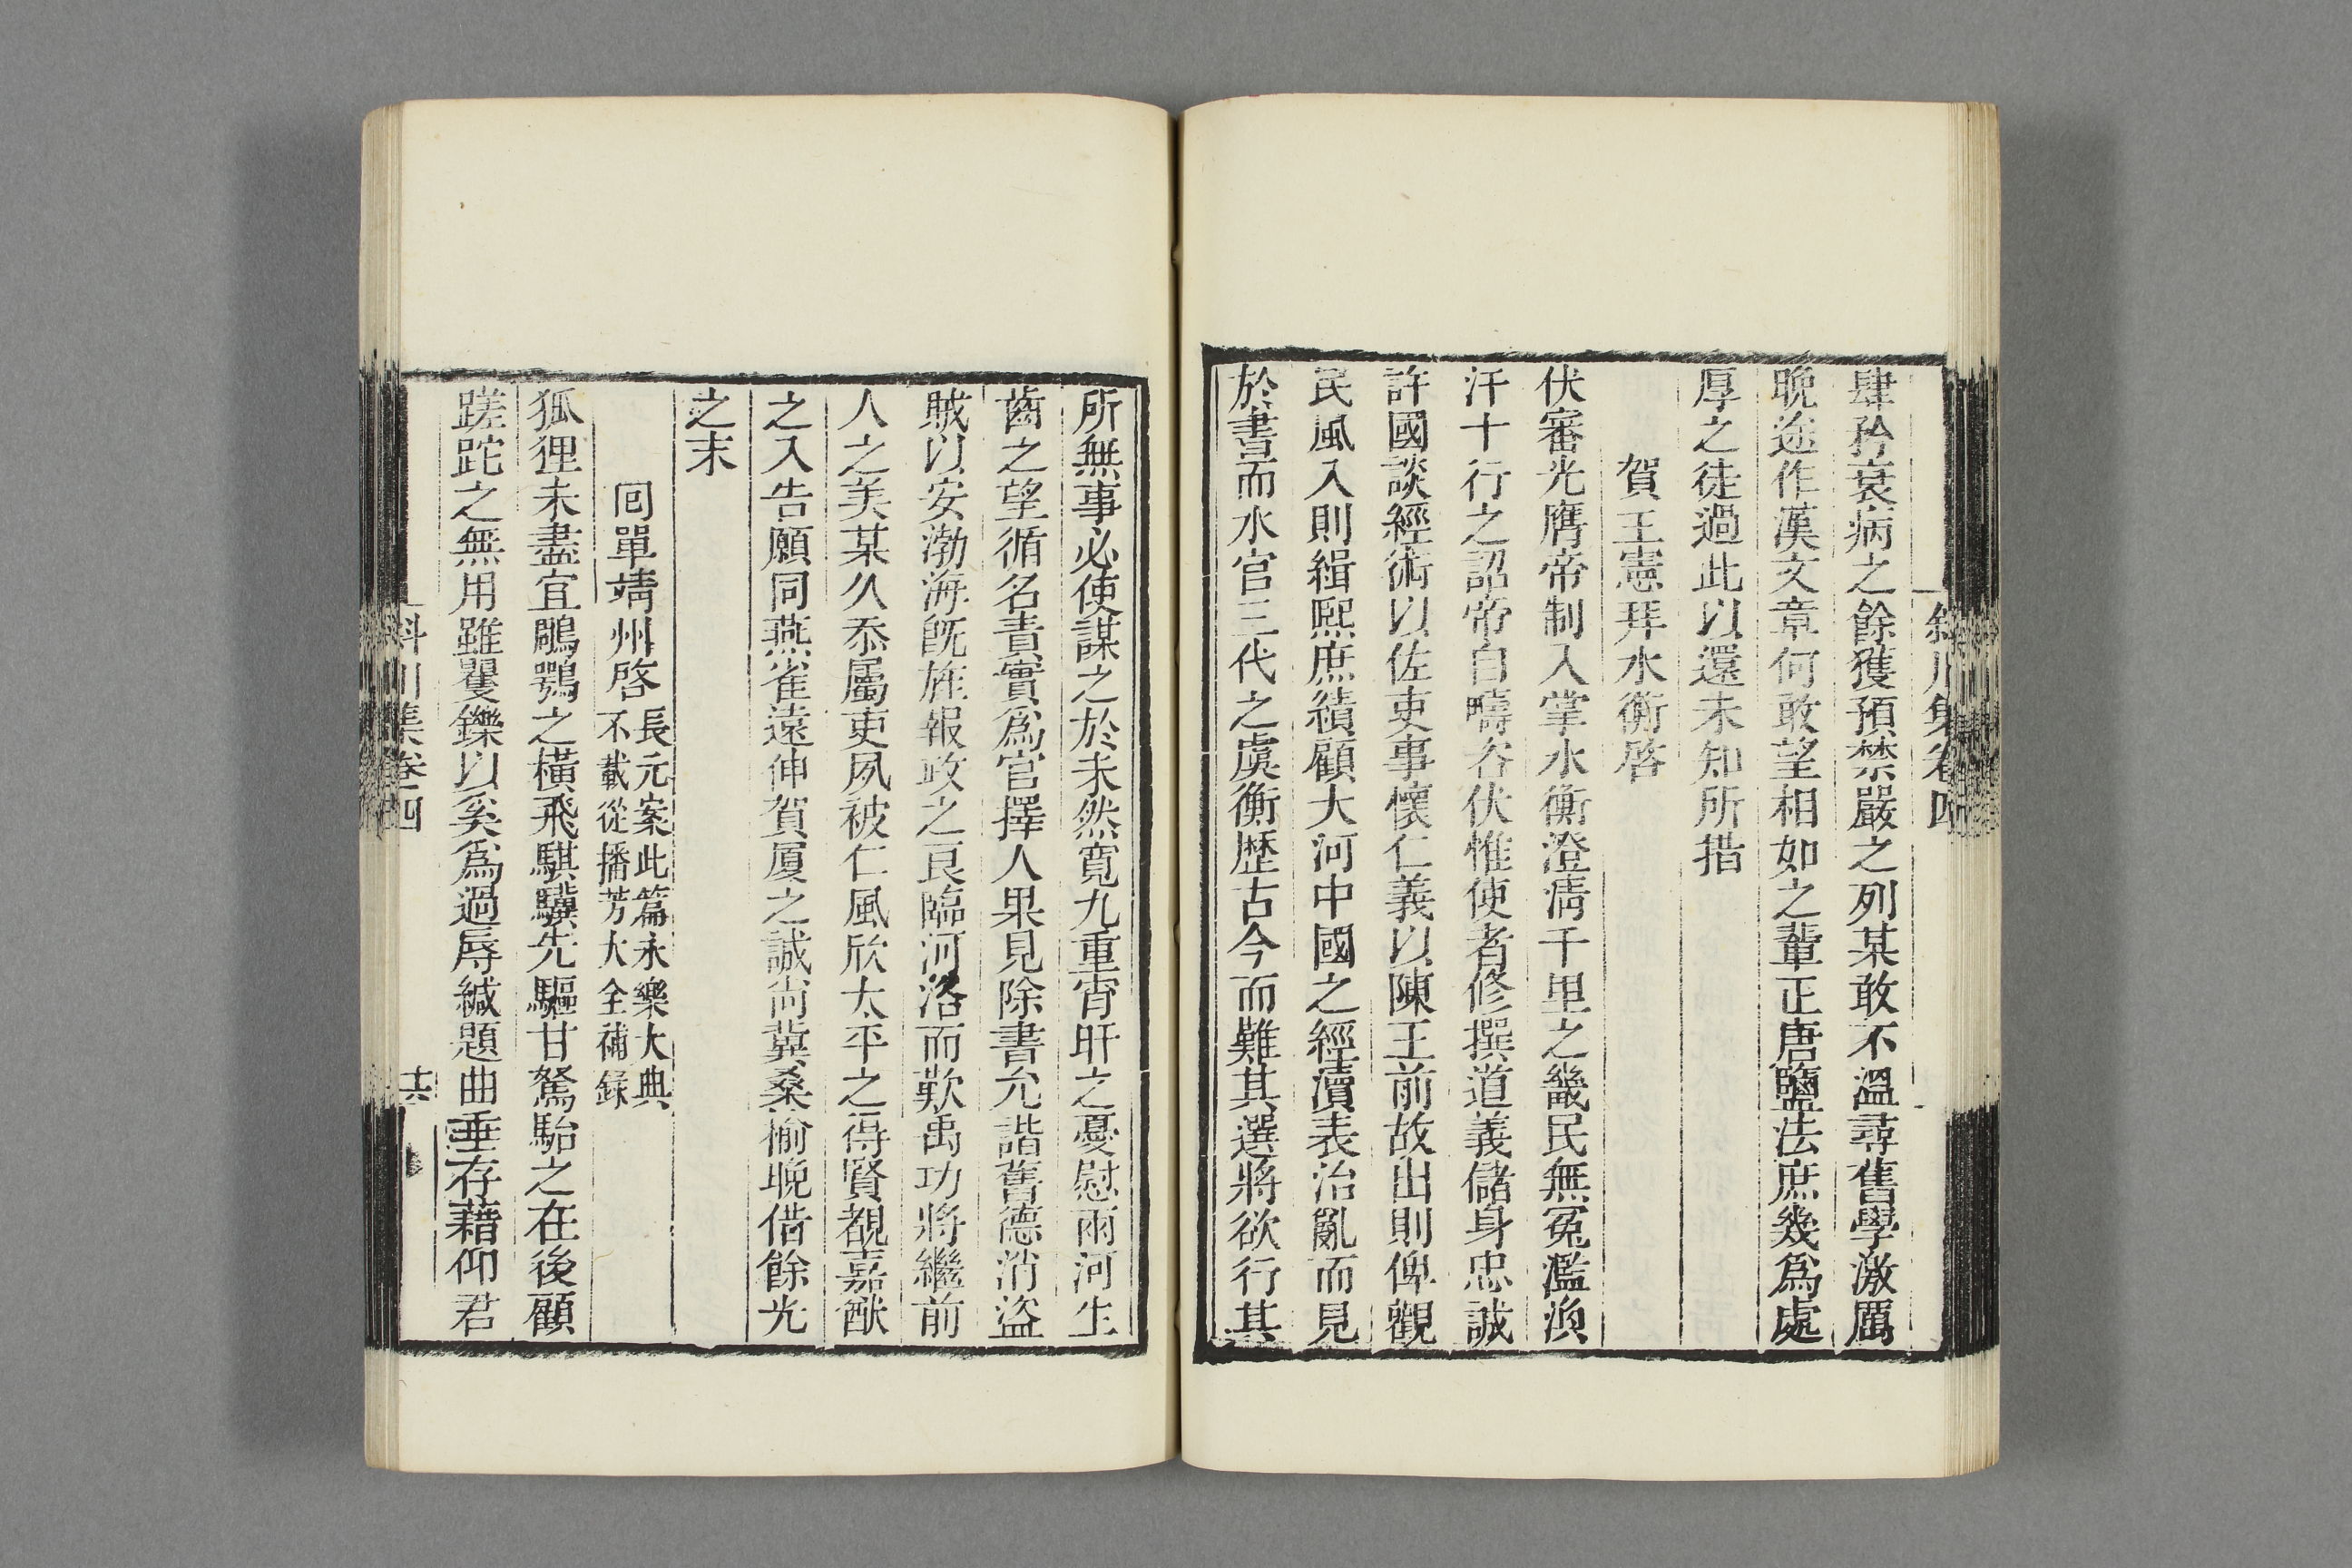 斜川集卷四
肆矜衰病之餘獲預禁嚴之列某敢不溫尋舊學激厲
晚途作漢文章何敢望相如之輩正唐鹽法庶幾爲處
厚之徒過此以還未知所措
賀王憲拜水衡啓
伏審光膺帝制入掌水衡澄淸千里之畿民無冤濫渙
汗十行之詔帝自疇咨伏惟使者修撰道義儲身忠誠
許國談經術以佐吏事懷仁義以陳王前故出則俾觀
民風入則緝熙庶績顧大河中國之經瀆表治亂而見
於書而水官三代之虞衡歷古今而難其選將欲行其
所無事必使謀之於未然寬九重宵旰之憂慰兩河生
齒之望循名責實爲官擇人果見除書允諧舊德消盜
賊以安渤海旣旌報政之良臨河洛而歎禹功將繼前
人之美某久忝屬吏夙被仁風欣太平之得賢覩嘉猷
之入告願同燕雀遠伸賀厦之誠尚冀桑榆晚借餘光
之末
囘單靖州啓
長元案此篇永樂大典
不載從播芳大全補錄
狐狸未盡宜鵰鶚之橫飛騏驥先驅甘駑駘之在後顧
蹉跎之無用雖矍鑠以奚爲過辱緘題曲垂存藉仰君
斜川集卷四
十六